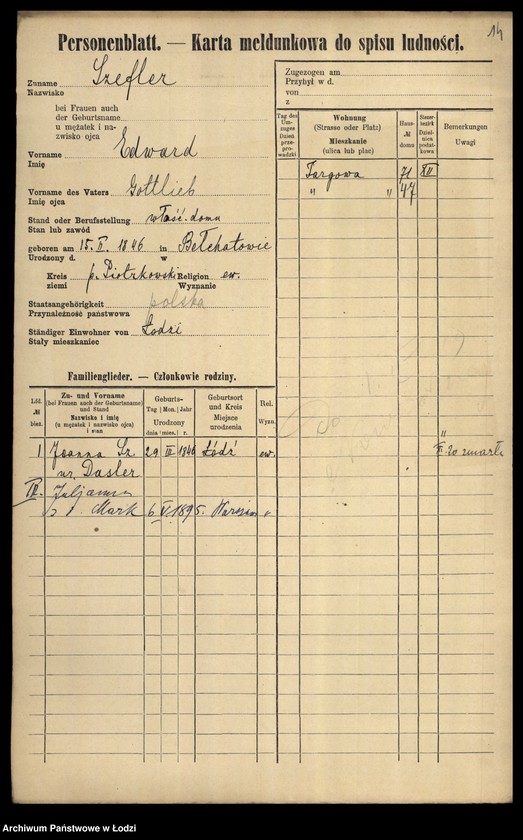 14
Personenblatt. — Karta meldunkowa do spisu ludności.
Zuname Szefler
Nazwisko
bei Frauen auch
der Geburtsname
u mężatek i na-
zwisko ojca
Vorname Edward
Imię
Vorname des Vaters Gottlieb
Imię ojca
Stand oder Berufsstellung właśc. domu
Stan lub zawód
geboren am 15. II. 1846 in Bełchatowie
Urodzony d. w
Kreis p. Piotrkowski Religion ew.
ziemi Wyznanie
Staatsangehörigkeit polska
Przynależność państwowa
Ständiger Einwohner von Łodzi
Stały mieszkaniec
Zugezogen am
Przybył w d.
von
z
Tag des Um-zuges Dzień prze-prowadzki
Wohnung
(Strasse oder Platz)
Mieszkanie
(ulica lub plac)
Haus-
№
domu
Steuer-bezirk Dziel-nica podat-kowa
Bemerkungen
Uwagi
Targowa 71 XII
" " 47
Familienglieder. — Członkowie rodziny.
Lfd. № bież.
Zu- und Vorname
(bei Frauen auch der Geburtsname)
und Stand
Nazwisko i imię
(u mężatek i nazwisko ojca)
i stan
Geburts-
Tag Mon. Jahr
Urodzony
dnia mies. r.
Geburtsort
und Kreis
Miejsce
urodzenia
Rel.
Wyzn.
1 Joanna Sz 29 III 1846 Łódź ew. 20 zmarła
ur. Dasler
Juljanna
z d. Mark 6 V 1895.
Archiwum Państwowe w Łodzi